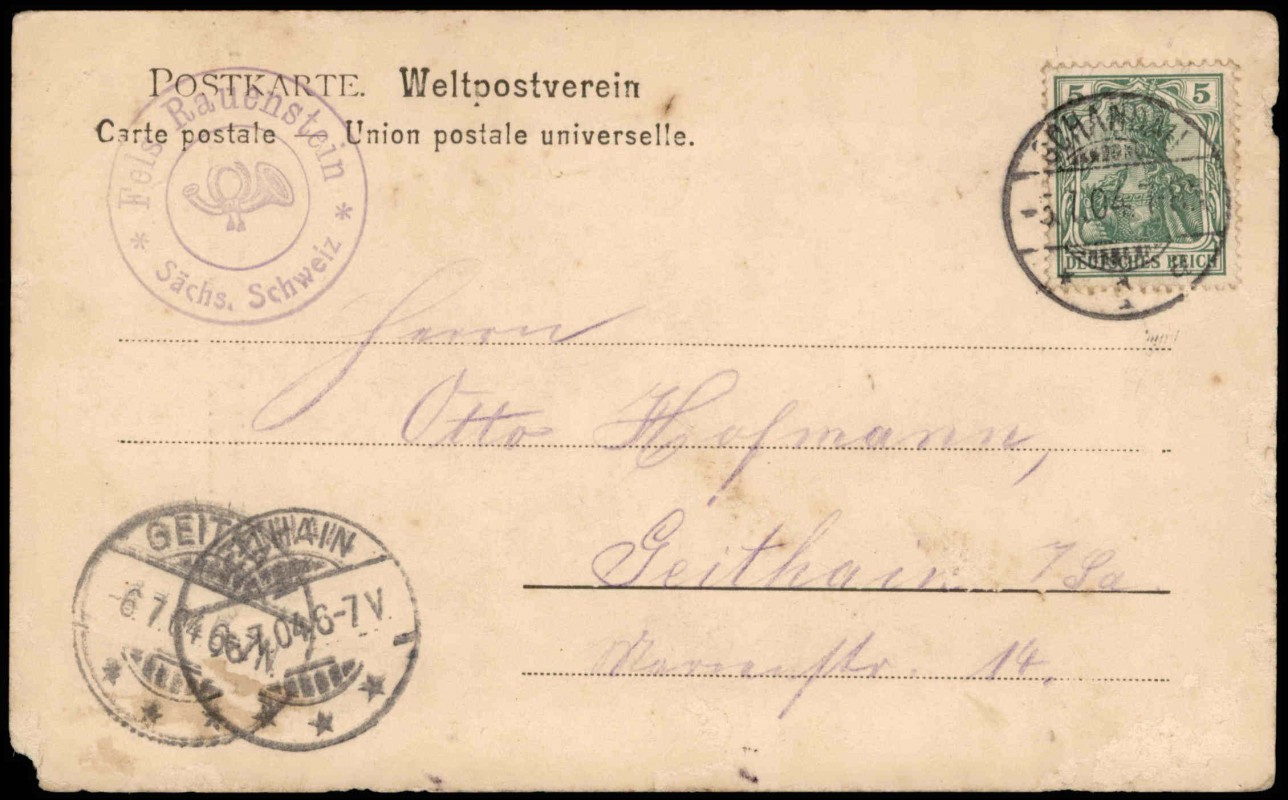 POSTKARTE. Weltpostverein
Carte postale — Union postale universelle.
* Fels Rauenstein *
Sächs. Schweiz
5 5
DEUTSCHES REICH
SCHANDAU
5.7.04
Herrn
Otto Hofmann,
Geithain i/Sa
Marienstr. 14.
GEITHAIN
6.7.04
GEITHAIN
6.7.04 6-7 V.